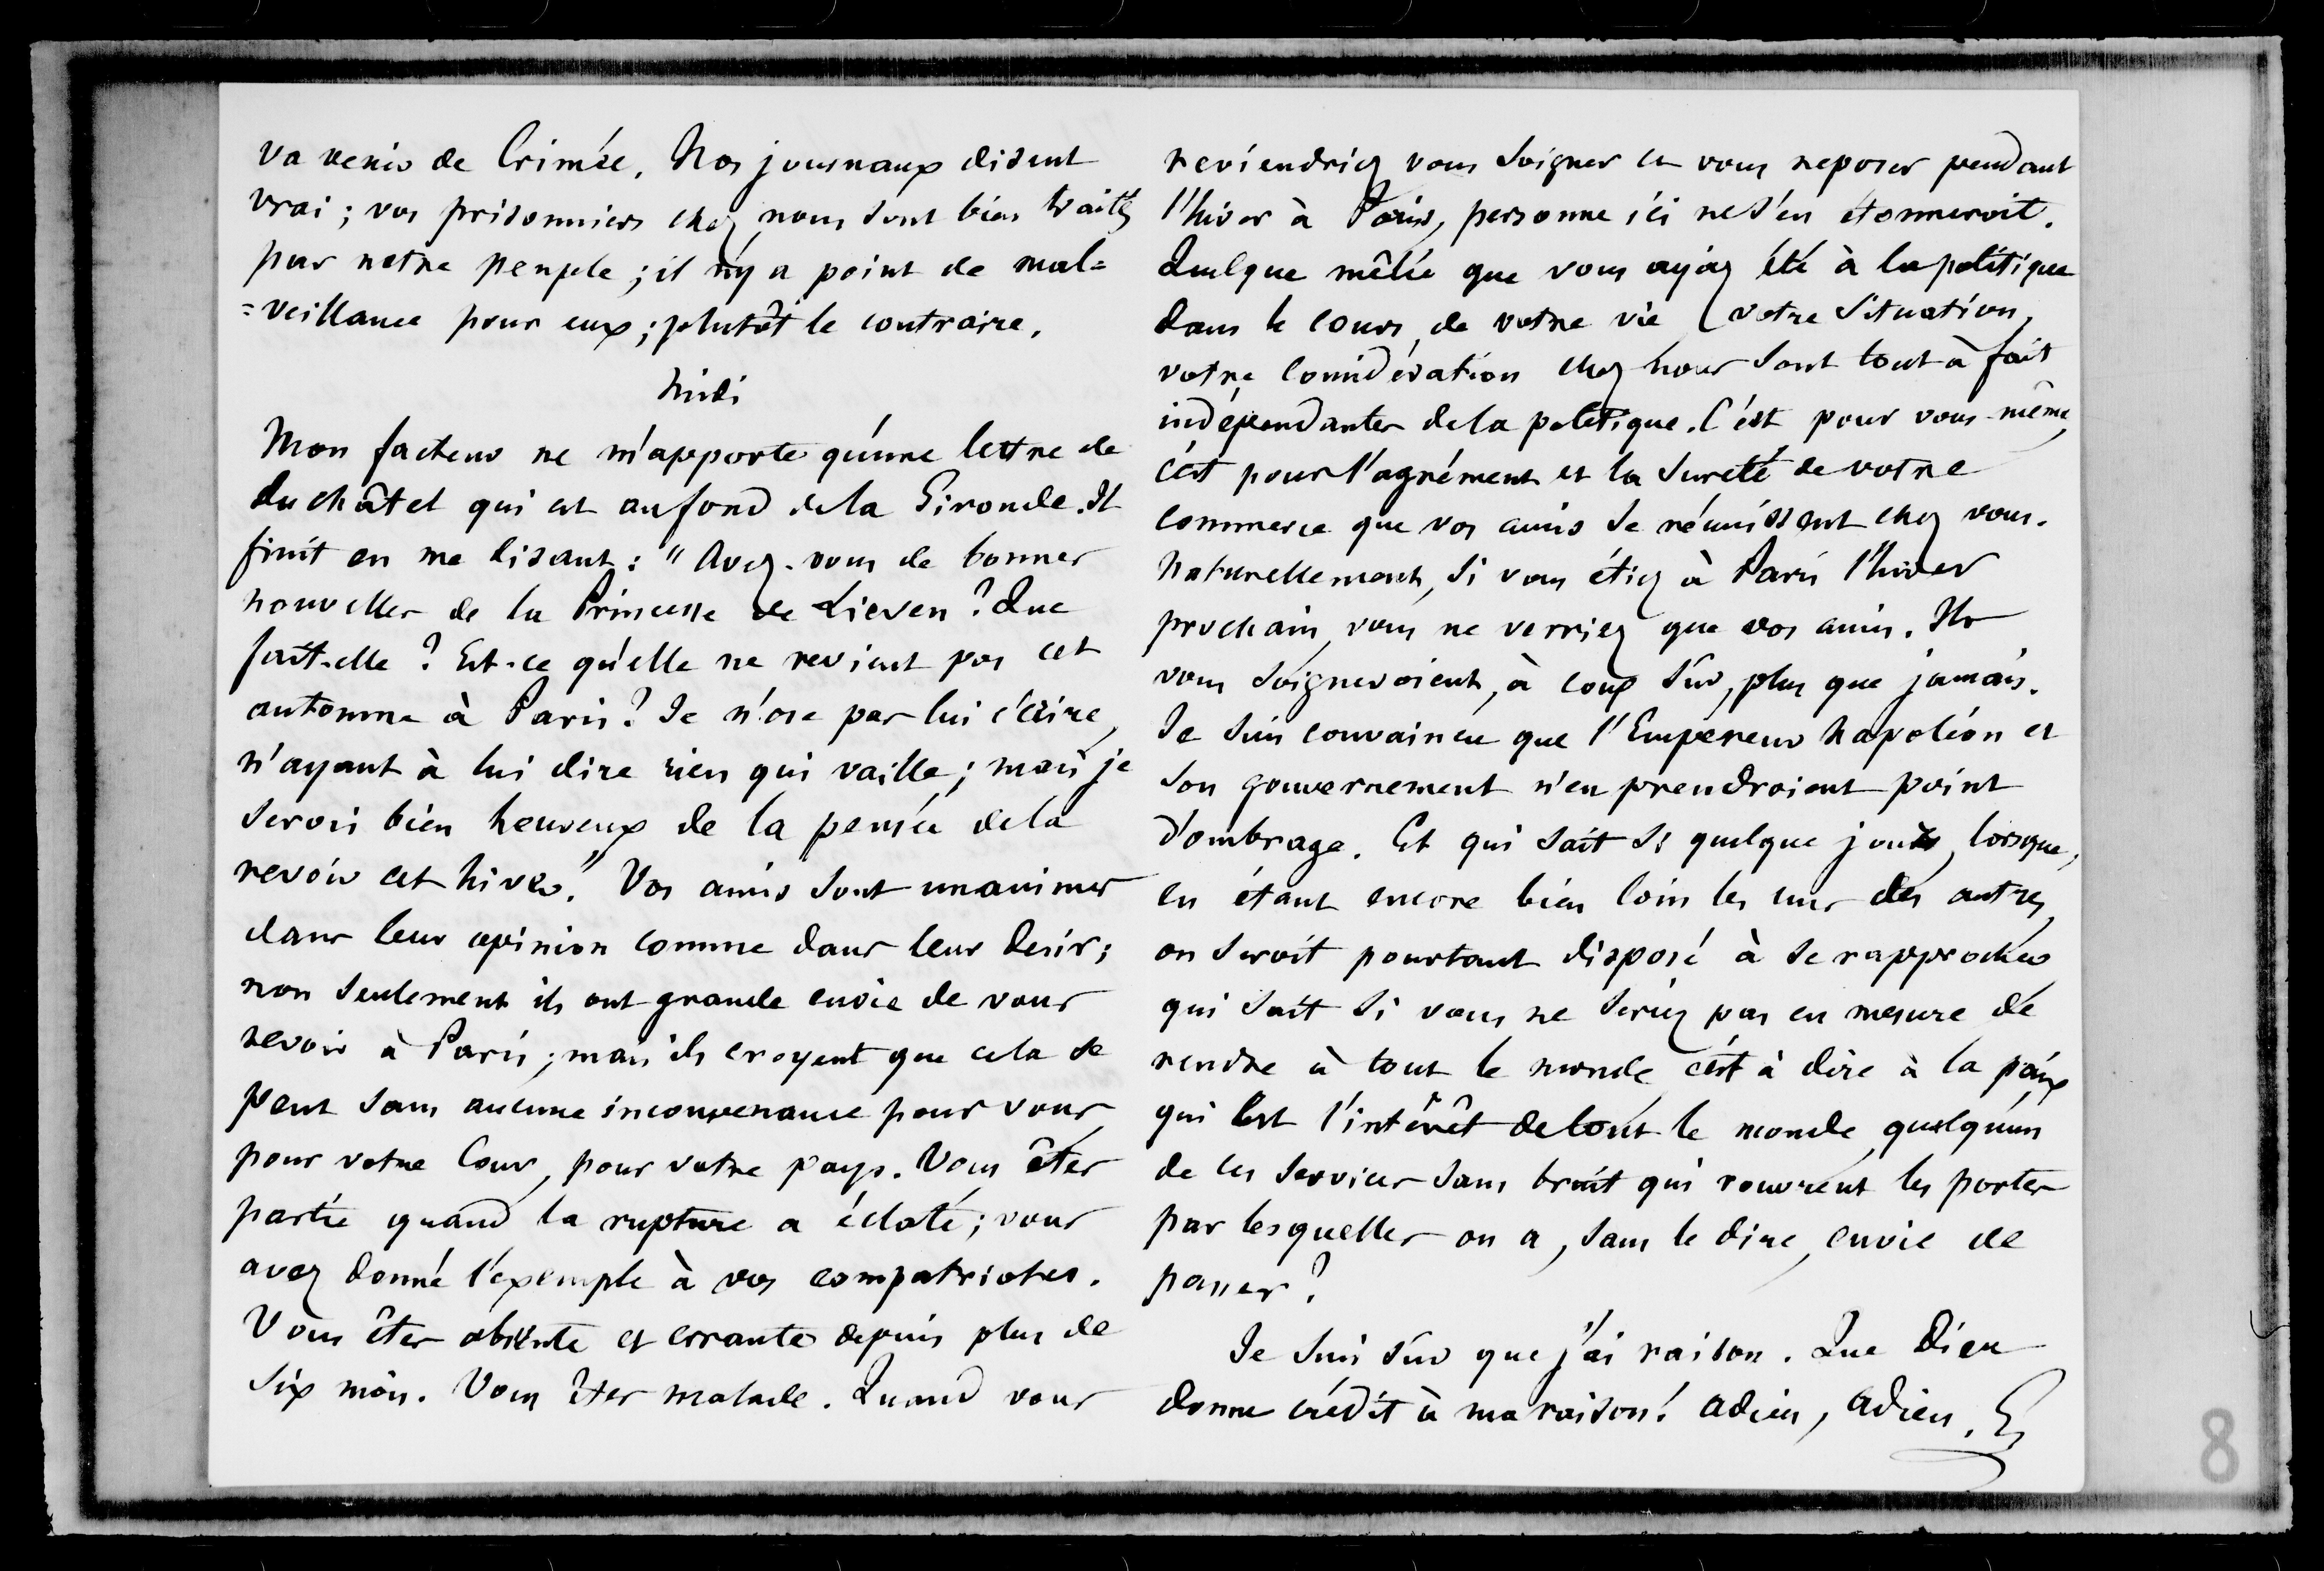 va venir de Crimée. Nos journaux disent
vrai ; vos prisonniers chez nous sont bien traités
par notre peuple ; il n'y a point de mal=
=veillance pour eux ; plutôt le contraire.
Midi
Mon facteur ne m'apporte qu'une lettre de
Duchâtel qui est au fond de la Gironde. Il
finit en me disant : "Avez-vous de bonnes
nouvelles de la Princesse de Lieven ? Que
fait-elle ? Est-ce qu'elle ne revient pas cet
automne à Paris ? Je n'ose pas lui écrire,
n'ayant à lui dire rien qui vaille ; mais je
serois bien heureux de la pensée de la
revoir cet hiver." Vos amis sont unanimes
dans leur opinion comme dans leur desir ;
non seulement ils ont grande envie de vous
revoir à Paris ; mais ils croyent que cela se
peut sans aucune inconvenance pour vous,
pour votre Cour, pour votre pays. Vous êtes
partie quand la rupture a éclaté ; vous
avez donné l'exemple à vos compatriotes.
Vous êtes absente et errante depuis plus de
six mois. Vous êtes malade. Quand vous
reviendriez vous soigner et vous reposer pendant
l'hiver à Paris, personne ici ne s'en étonneroit.
Quelque mêlée que vous ayez été à la politique
dans le cours de votre vie, votre situation,
votre considération chez nous sont tout à fait
indépendantes de la politique. C'est pour vous-même,
c'est pour l'agrément et la sureté de votre
commerce que vos amis se réunissent chez vous.
Naturellement, si vous étiez à Paris l'hiver
prochain, vous ne verriez que vos amis. Ils
vous soigneroient, à coup sûr, plus que jamais.
Je suis convaincu que l'Empereur Napoléon et
son gouvernement n'en prendroient point
d'ombrage. Et qui sait si quelque jour, lorsque,
en étant encore bien loin les uns des autres,
on seroit pourtant disposé à se rapprocher
qui sait si vous ne seriez pas en mesure de
rendre à tout le monde, c'est à dire à la paix
qui est l'intérêt de tout le monde, quelqu'un
de ces services sans bruit qui rouvrent les portes
par lesquelles on a, sans le dire, envie de
passer ?
Je suis sûr que j'ai raison. Que Dieu
donne crédit à ma raison ! Adieu, Adieu. G
8